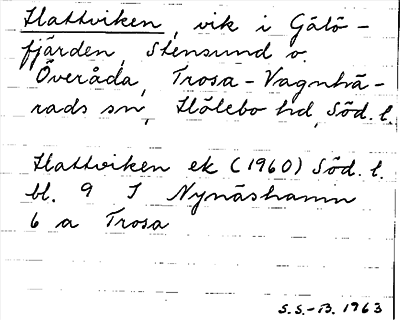 Hattviken, vik i Gälö-
fjärden, Stensund o.
Överåda, Trosa-Vagnhä-
rads sn, Hölebo hd, Söd. l.
Hattviken ek (1960) Söd. l.
bl. 9 I Nynäshamn
6 a Trosa
S.S.-B. 1963